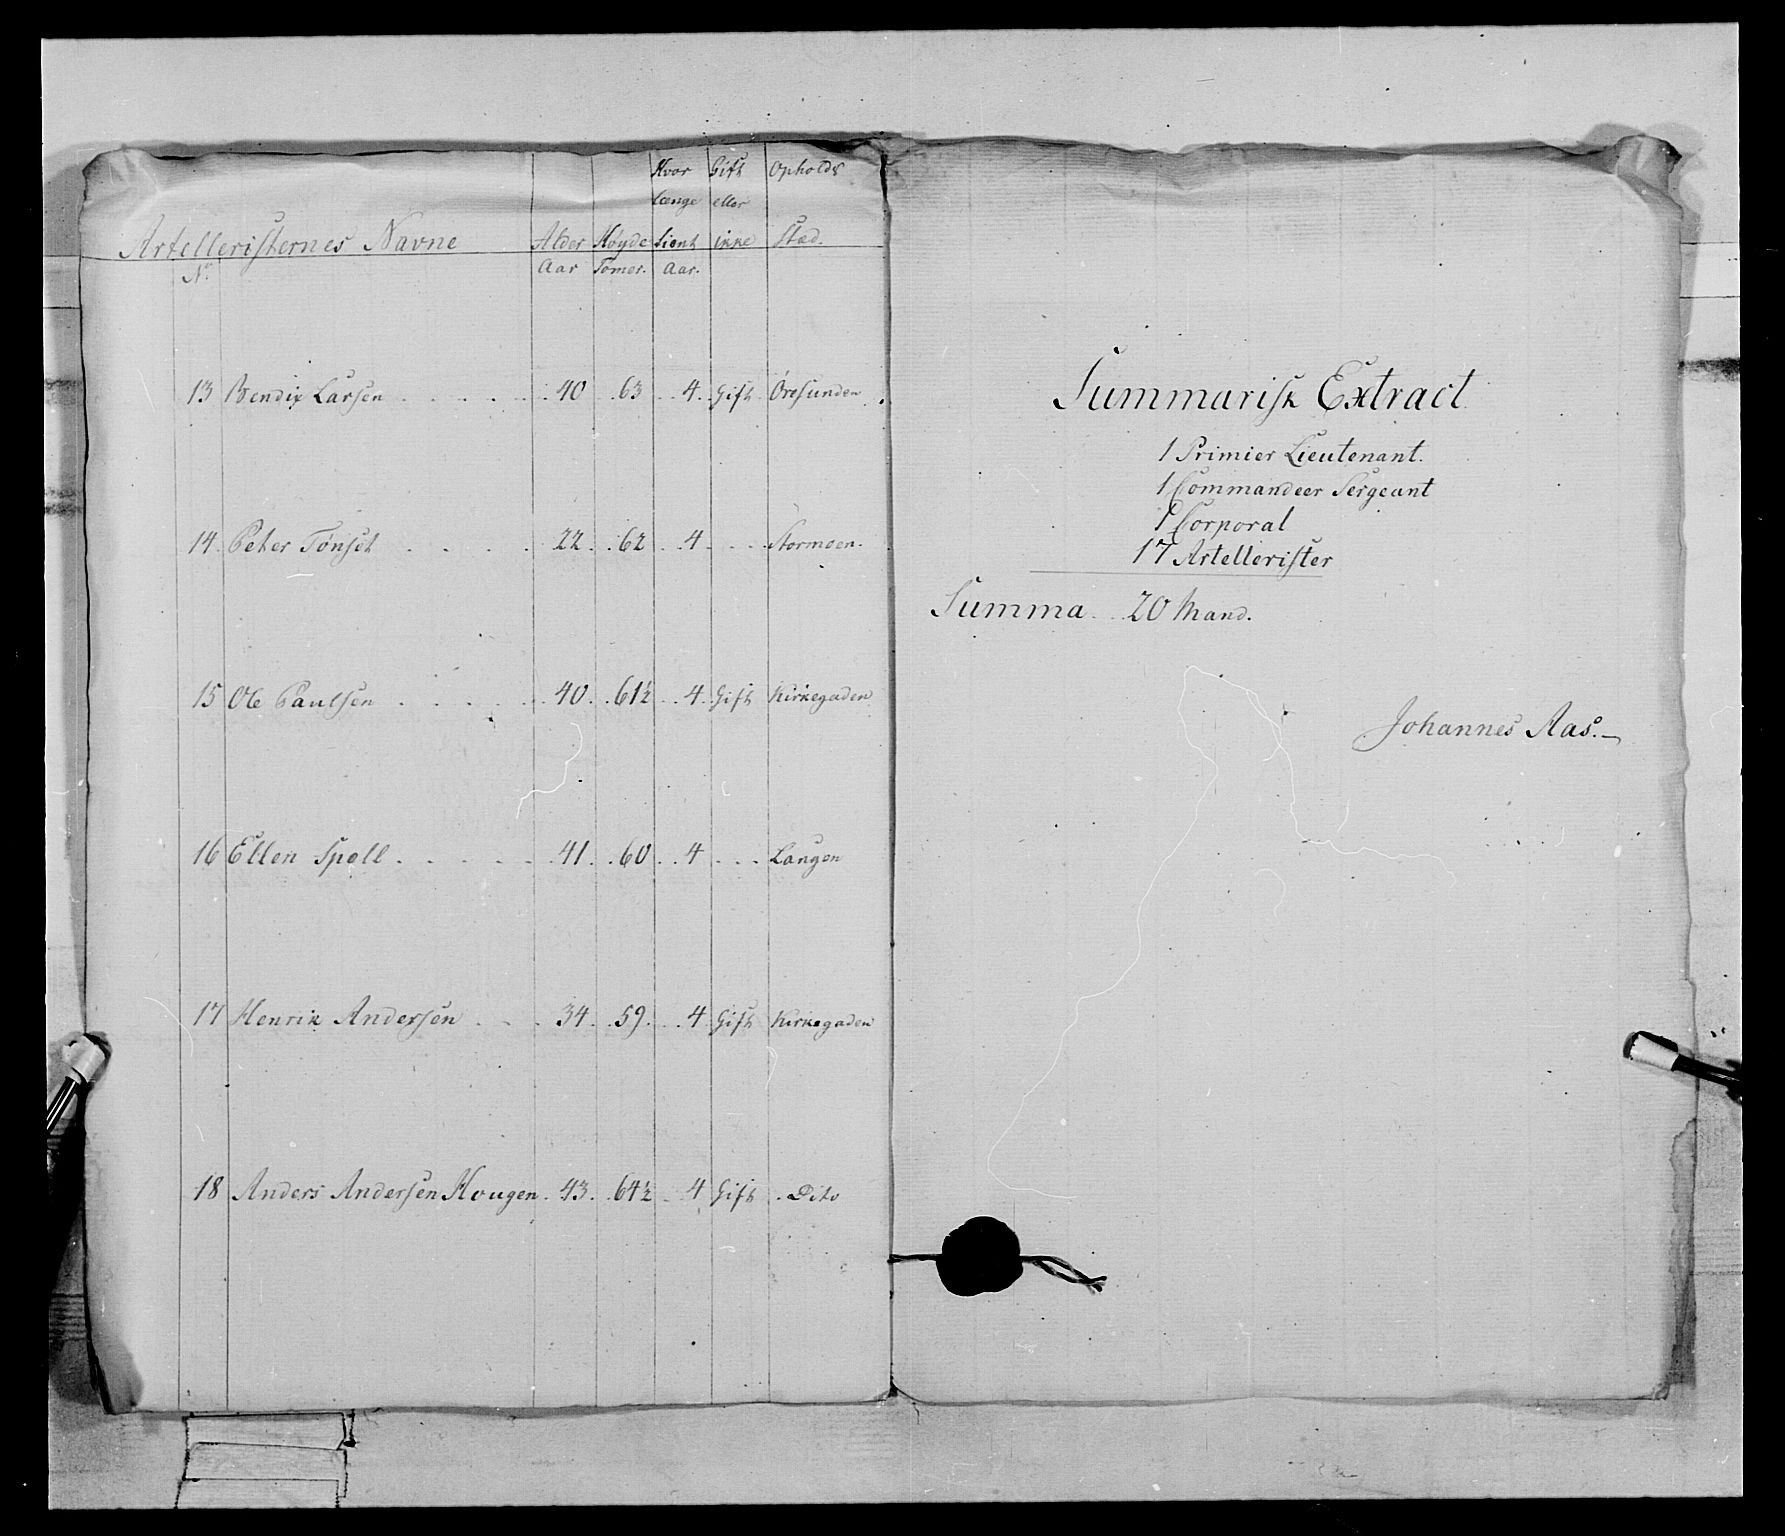 Hvor Gift Opholds
længe eller
Artelleristernes Navne Alder Høyde tient ikke Stæd.
No. Aar Tomer. Aar.
13 Bendix Larsen . . . . . 40 . . 63 . . 4 . Gift Øresunden
14. Peter Tønset . . . . 22 . . 62 . . 4 . . . Stormoen.
15 Ole Paulsen . . . . . 40 . . 61½ . . 4 . Gift Kirkegaden
16 Ellen Spell . . . . . 41 . . 60 . . 4 . . . Langen
17 Henrik Andersen . . . 34 . . 59 . . 4 Gift Kirkegaden
18 Anders Andersen Hougen . 43 . . 64½ . . 4 Gift . Dito
Summarisk Extract
1 Primier Lieutenant.
1 Commandeer Sergeant
1 Corporal
17 Artellerister
Summa . . 20 Mand.
Johannes Aas. —